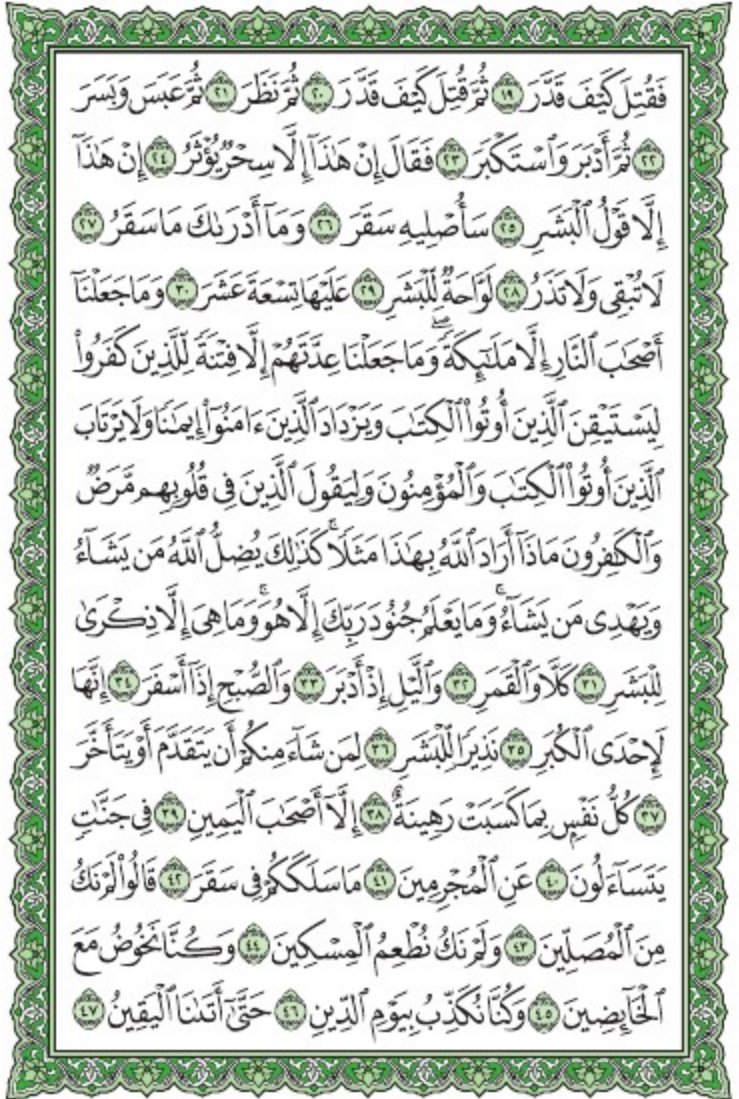 فَقُتِلَ كَيۡفَ قَدَّرَ ١٩ ثُمَّ قُتِلَ كَيۡفَ قَدَّرَ ٢٠ ثُمَّ نَظَرَ ٢١ ثُمَّ عَبَسَ وَبَسَرَ
٢٢ ثُمَّ أَدۡبَرَ وَٱسۡتَكۡبَرَ ٢٣ فَقَالَ إِنۡ هَٰذَآ إِلَّا سِحۡرٞ يُؤۡثَرُ ٢٤ إِنۡ هَٰذَآ
إِلَّا قَوۡلُ ٱلۡبَشَرِ ٢٥ سَأُصۡلِيهِ سَقَرَ ٢٦ وَمَآ أَدۡرَىٰكَ مَا سَقَرُ ٢٧
لَا تُبۡقِي وَلَا تَذَرُ ٢٨ لَوَّاحَةٞ لِّلۡبَشَرِ ٢٩ عَلَيۡهَا تِسۡعَةَ عَشَرَ ٣٠ وَمَا جَعَلۡنَآ
أَصۡحَٰبَ ٱلنَّارِ إِلَّا مَلَٰٓئِكَةٗۖ وَمَا جَعَلۡنَا عِدَّتَهُمۡ إِلَّا فِتۡنَةٗ لِّلَّذِينَ كَفَرُواْ
لِيَسۡتَيۡقِنَ ٱلَّذِينَ أُوتُواْ ٱلۡكِتَٰبَ وَيَزۡدَادَ ٱلَّذِينَ ءَامَنُوٓاْ إِيمَٰنٗا وَلَا يَرۡتَابَ
ٱلَّذِينَ أُوتُواْ ٱلۡكِتَٰبَ وَٱلۡمُؤۡمِنُونَ وَلِيَقُولَ ٱلَّذِينَ فِي قُلُوبِهِم مَّرَضٞ
وَٱلۡكَٰفِرُونَ مَاذَآ أَرَادَ ٱللَّهُ بِهَٰذَا مَثَلٗاۚ كَذَٰلِكَ يُضِلُّ ٱللَّهُ مَن يَشَآءُ
وَيَهۡدِي مَن يَشَآءُۚ وَمَا يَعۡلَمُ جُنُودَ رَبِّكَ إِلَّا هُوَۚ وَمَا هِيَ إِلَّا ذِكۡرَىٰ
لِلۡبَشَرِ ٣١ كَلَّا وَٱلۡقَمَرِ ٣٢ وَٱلَّيۡلِ إِذۡ أَدۡبَرَ ٣٣ وَٱلصُّبۡحِ إِذَآ أَسۡفَرَ ٣٤ إِنَّهَا
لَإِحۡدَى ٱلۡكُبَرِ ٣٥ نَذِيرٗا لِّلۡبَشَرِ ٣٦ لِمَن شَآءَ مِنكُمۡ أَن يَتَقَدَّمَ أَوۡ يَتَأَخَّرَ
٣٧ كُلُّ نَفۡسِۭ بِمَا كَسَبَتۡ رَهِينَةٌ ٣٨ إِلَّآ أَصۡحَٰبَ ٱلۡيَمِينِ ٣٩ فِي جَنَّٰتٖ
يَتَسَآءَلُونَ ٤٠ عَنِ ٱلۡمُجۡرِمِينَ ٤١ مَا سَلَكَكُمۡ فِي سَقَرَ ٤٢ قَالُواْ لَمۡ نَكُ
مِنَ ٱلۡمُصَلِّينَ ٤٣ وَلَمۡ نَكُ نُطۡعِمُ ٱلۡمِسۡكِينَ ٤٤ وَكُنَّا نَخُوضُ مَعَ
ٱلۡخَآئِضِينَ ٤٥ وَكُنَّا نُكَذِّبُ بِيَوۡمِ ٱلدِّينِ ٤٦ حَتَّىٰٓ أَتَىٰنَا ٱلۡيَقِينُ ٤٧